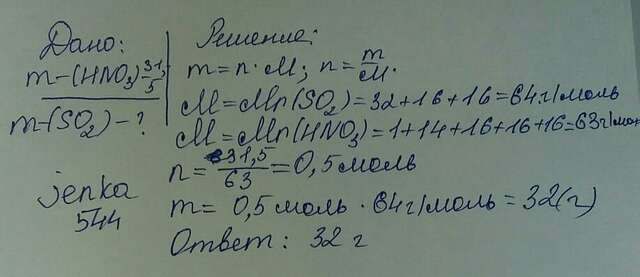 Дано:
m-(HNO₃) 31,5
m-(SO₂) - ?
jenka
544
Решение:
m = n · M; n = m/M.
M = Mr(SO₂) = 32 + 16 + 16 = 64 г/моль
M = Mr(HNO₃) = 1+14+16+16+16 = 63 г/мол
n = 31,5/63 = 0,5 моль
m = 0,5 моль · 64 г/моль = 32(г)
Ответ: 32 г